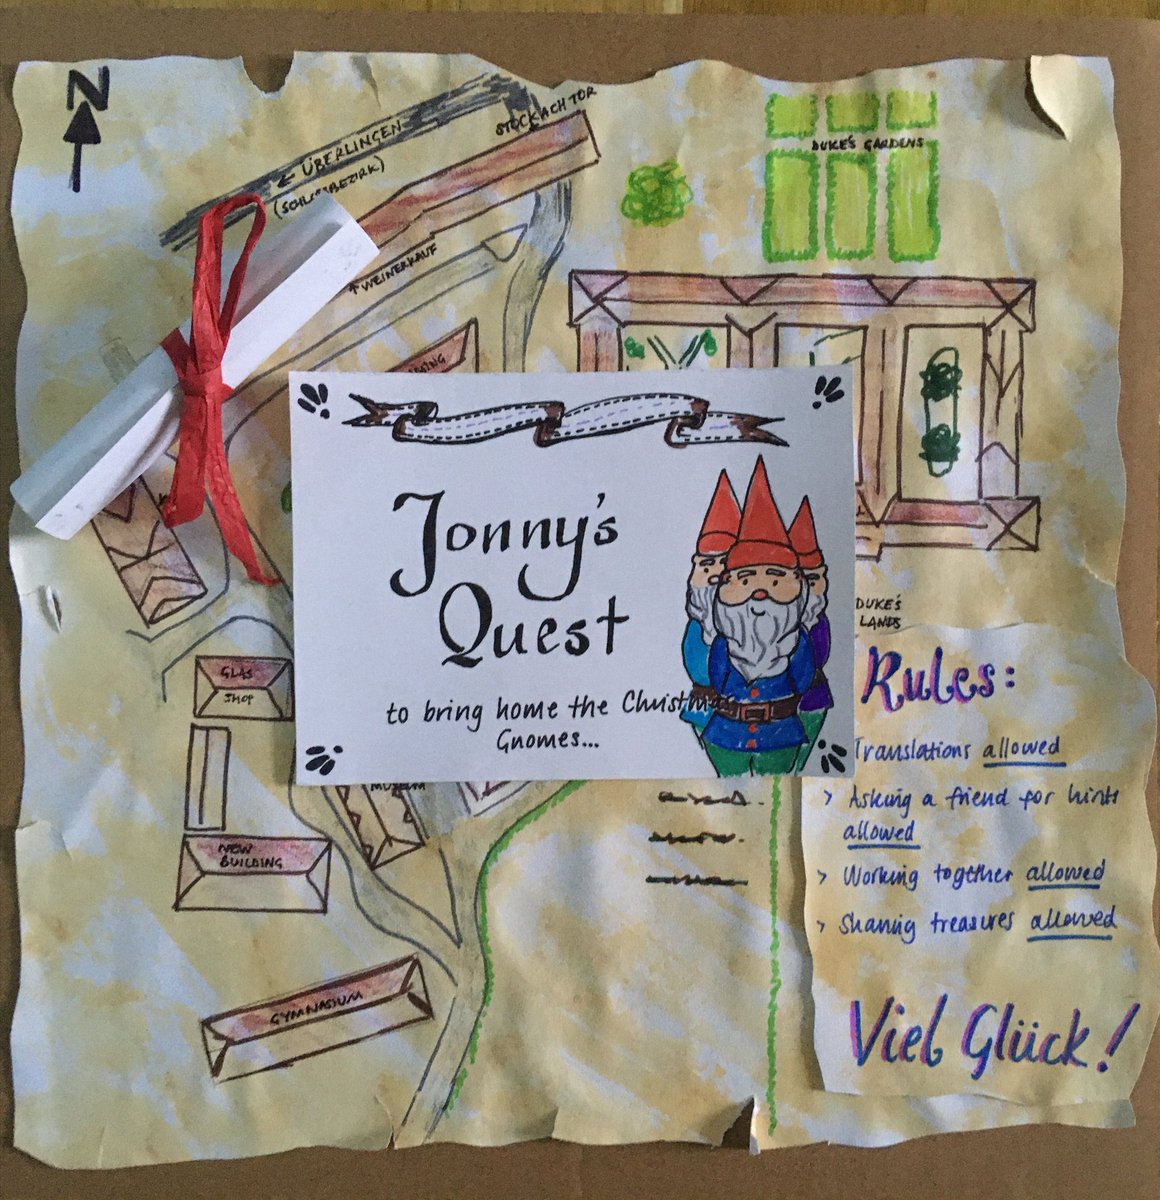 N
← ÜBERLINGEN
STOCKACH TOR
↑ WEINERKAUF
DUKE'S GARDENS
Jonny's
Quest
to bring home the Christmas
Gnomes...
DUKE'S
LANDS
GLAS
SHOP
NEW
BUILDING
MUSEUM
GYMNASIUM
Rules:
Translations allowed
> Asking a friend for hints
allowed
> Working together allowed
> Sharing treasures allowed
Viel Glück!